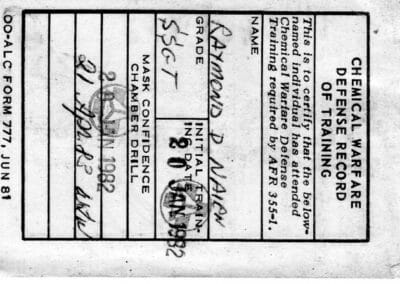 CHEMICAL WARFARE
DEFENSE RECORD
OF TRAINING
This is to certify that the below-
named individual has attended
Chemical Warfare Defense
Training required by AFR 355-1.
NAME
RAYMOND D
GRADE
SSGT
INITIAL TRAIN-
ING DATE
20 JAN 1982
MASK CONFIDENCE
CHAMBER DRILL
20 JAN 1982
21 APR 83
OO-ALC FORM 777, JUN 81